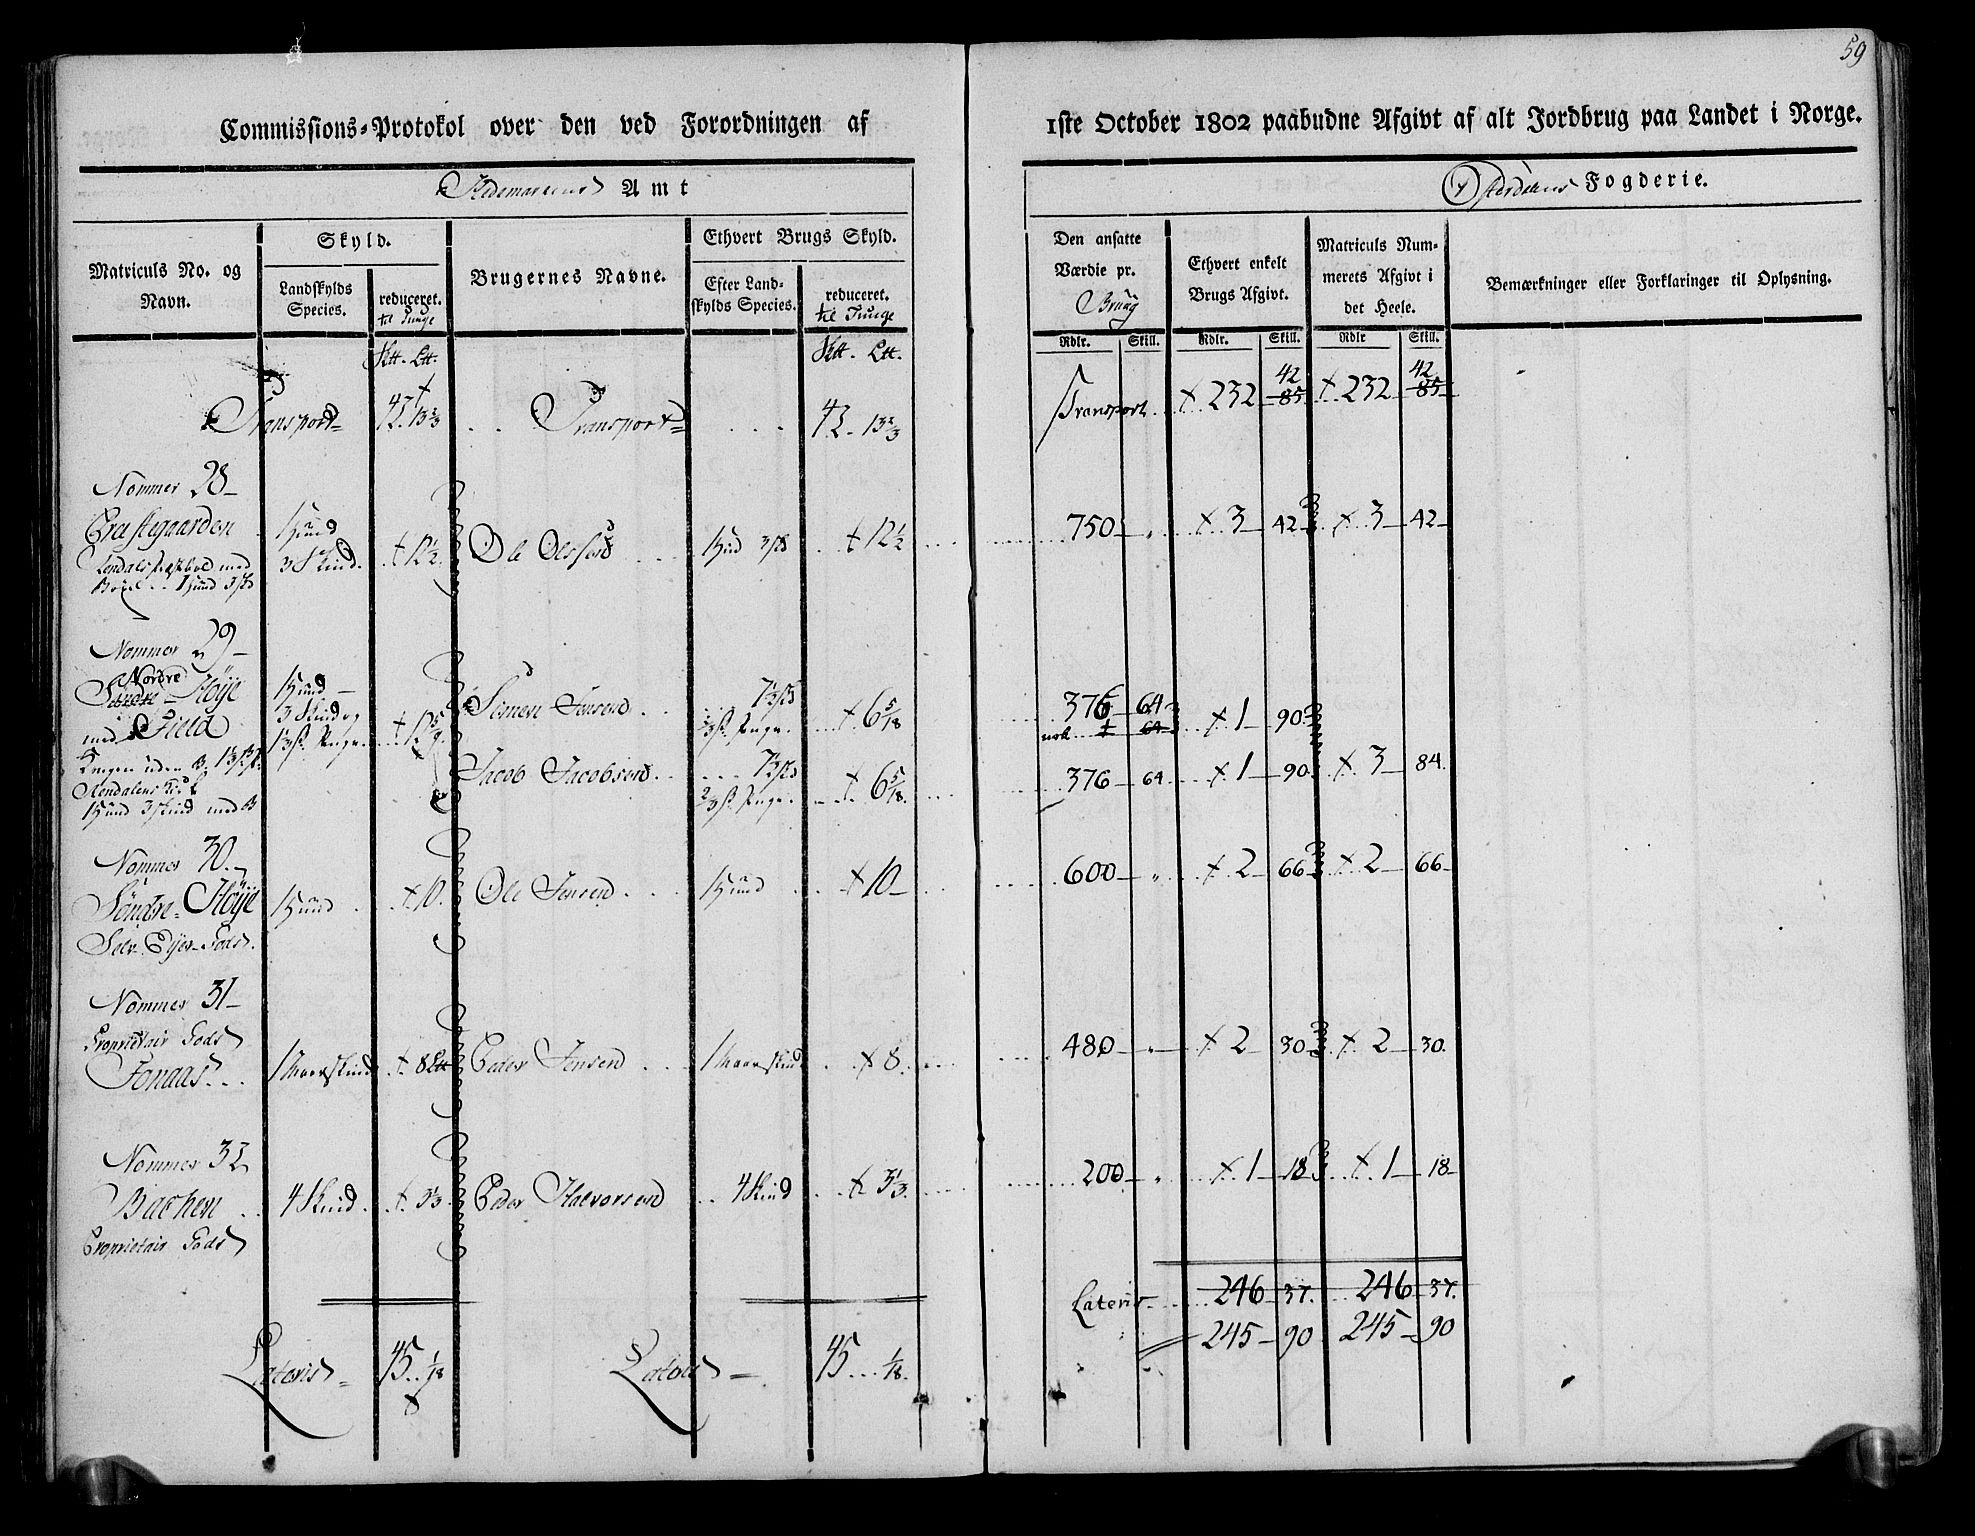 59
Commissions-Protokol over den ved Forordningen af 1ste October 1802 paabudne Afgivt af alt Jordbrug paa Landet i Norge.
Hedemarkens Amt
Østerdalens Fogderie.
Matriculs No. og Navn.
Skyld.
Landskylds Species.
reduceret. til Tunge
Brugernes Navne.
Ethvert Brugs Skyld.
Efter Landskylds Species.
reduceret. til Tunge
Den ansatte Værdie pr. Brug
Ethvert enkelt Brugs Afgivt.
Matriculs Nummerets Afgivt i det Heele.
Bemærkninger eller Forklaringer til Oplysning.
Rdlr. Skill. Rdlr. Skill. Rdlr Skill.
Transport 42. 13 2/3 Transport 42. 13 2/3 Transport 232 42 85 232 42 85
Nommer 28
Præstegaarden 1 Hund 3 Skind 12 1/2 Ole Olsen 1 Hud 3 sk 12 1/2 750 " 3 42 3 42
Nommer 29
Nordre
Søndre Høye 1 Hund
med Field 3 Skind og 12 5/9 Simen Jensen 6 5/18 376 64 1 90
Jacob Jacobsen 6 5/18 376 64 1 90 3 84
1 Hund 3 skind med B
Nommer 30
Søndre Høye 1 Hund 10. Ole Jensen 1 Hund 10 600 " 2 66 2 66
Selv Eyer Gods
Nommer 31
Proprietair Gods
Fonaas 1 Maarskind 8 Peder Jensen 1 Maarskind 8. 480 " 2 30 2 30.
Nommer 32
Bachen 4 Skind 3 1/3 Peder Halvorsen 4 Skind 3 1/3 200 " 1 18 1 18
Proprietair Gods
Lateris 246 37. 246 37.
245 90 245 90
Lateris 45. 1/18 Lateris 45 1/18.